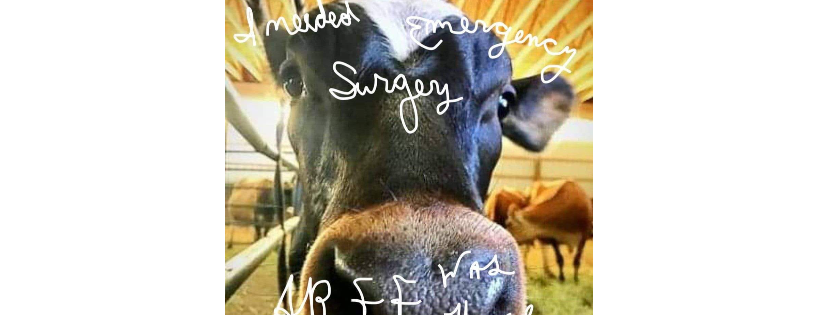 I needed Emergency
Surgery
AREE WAS